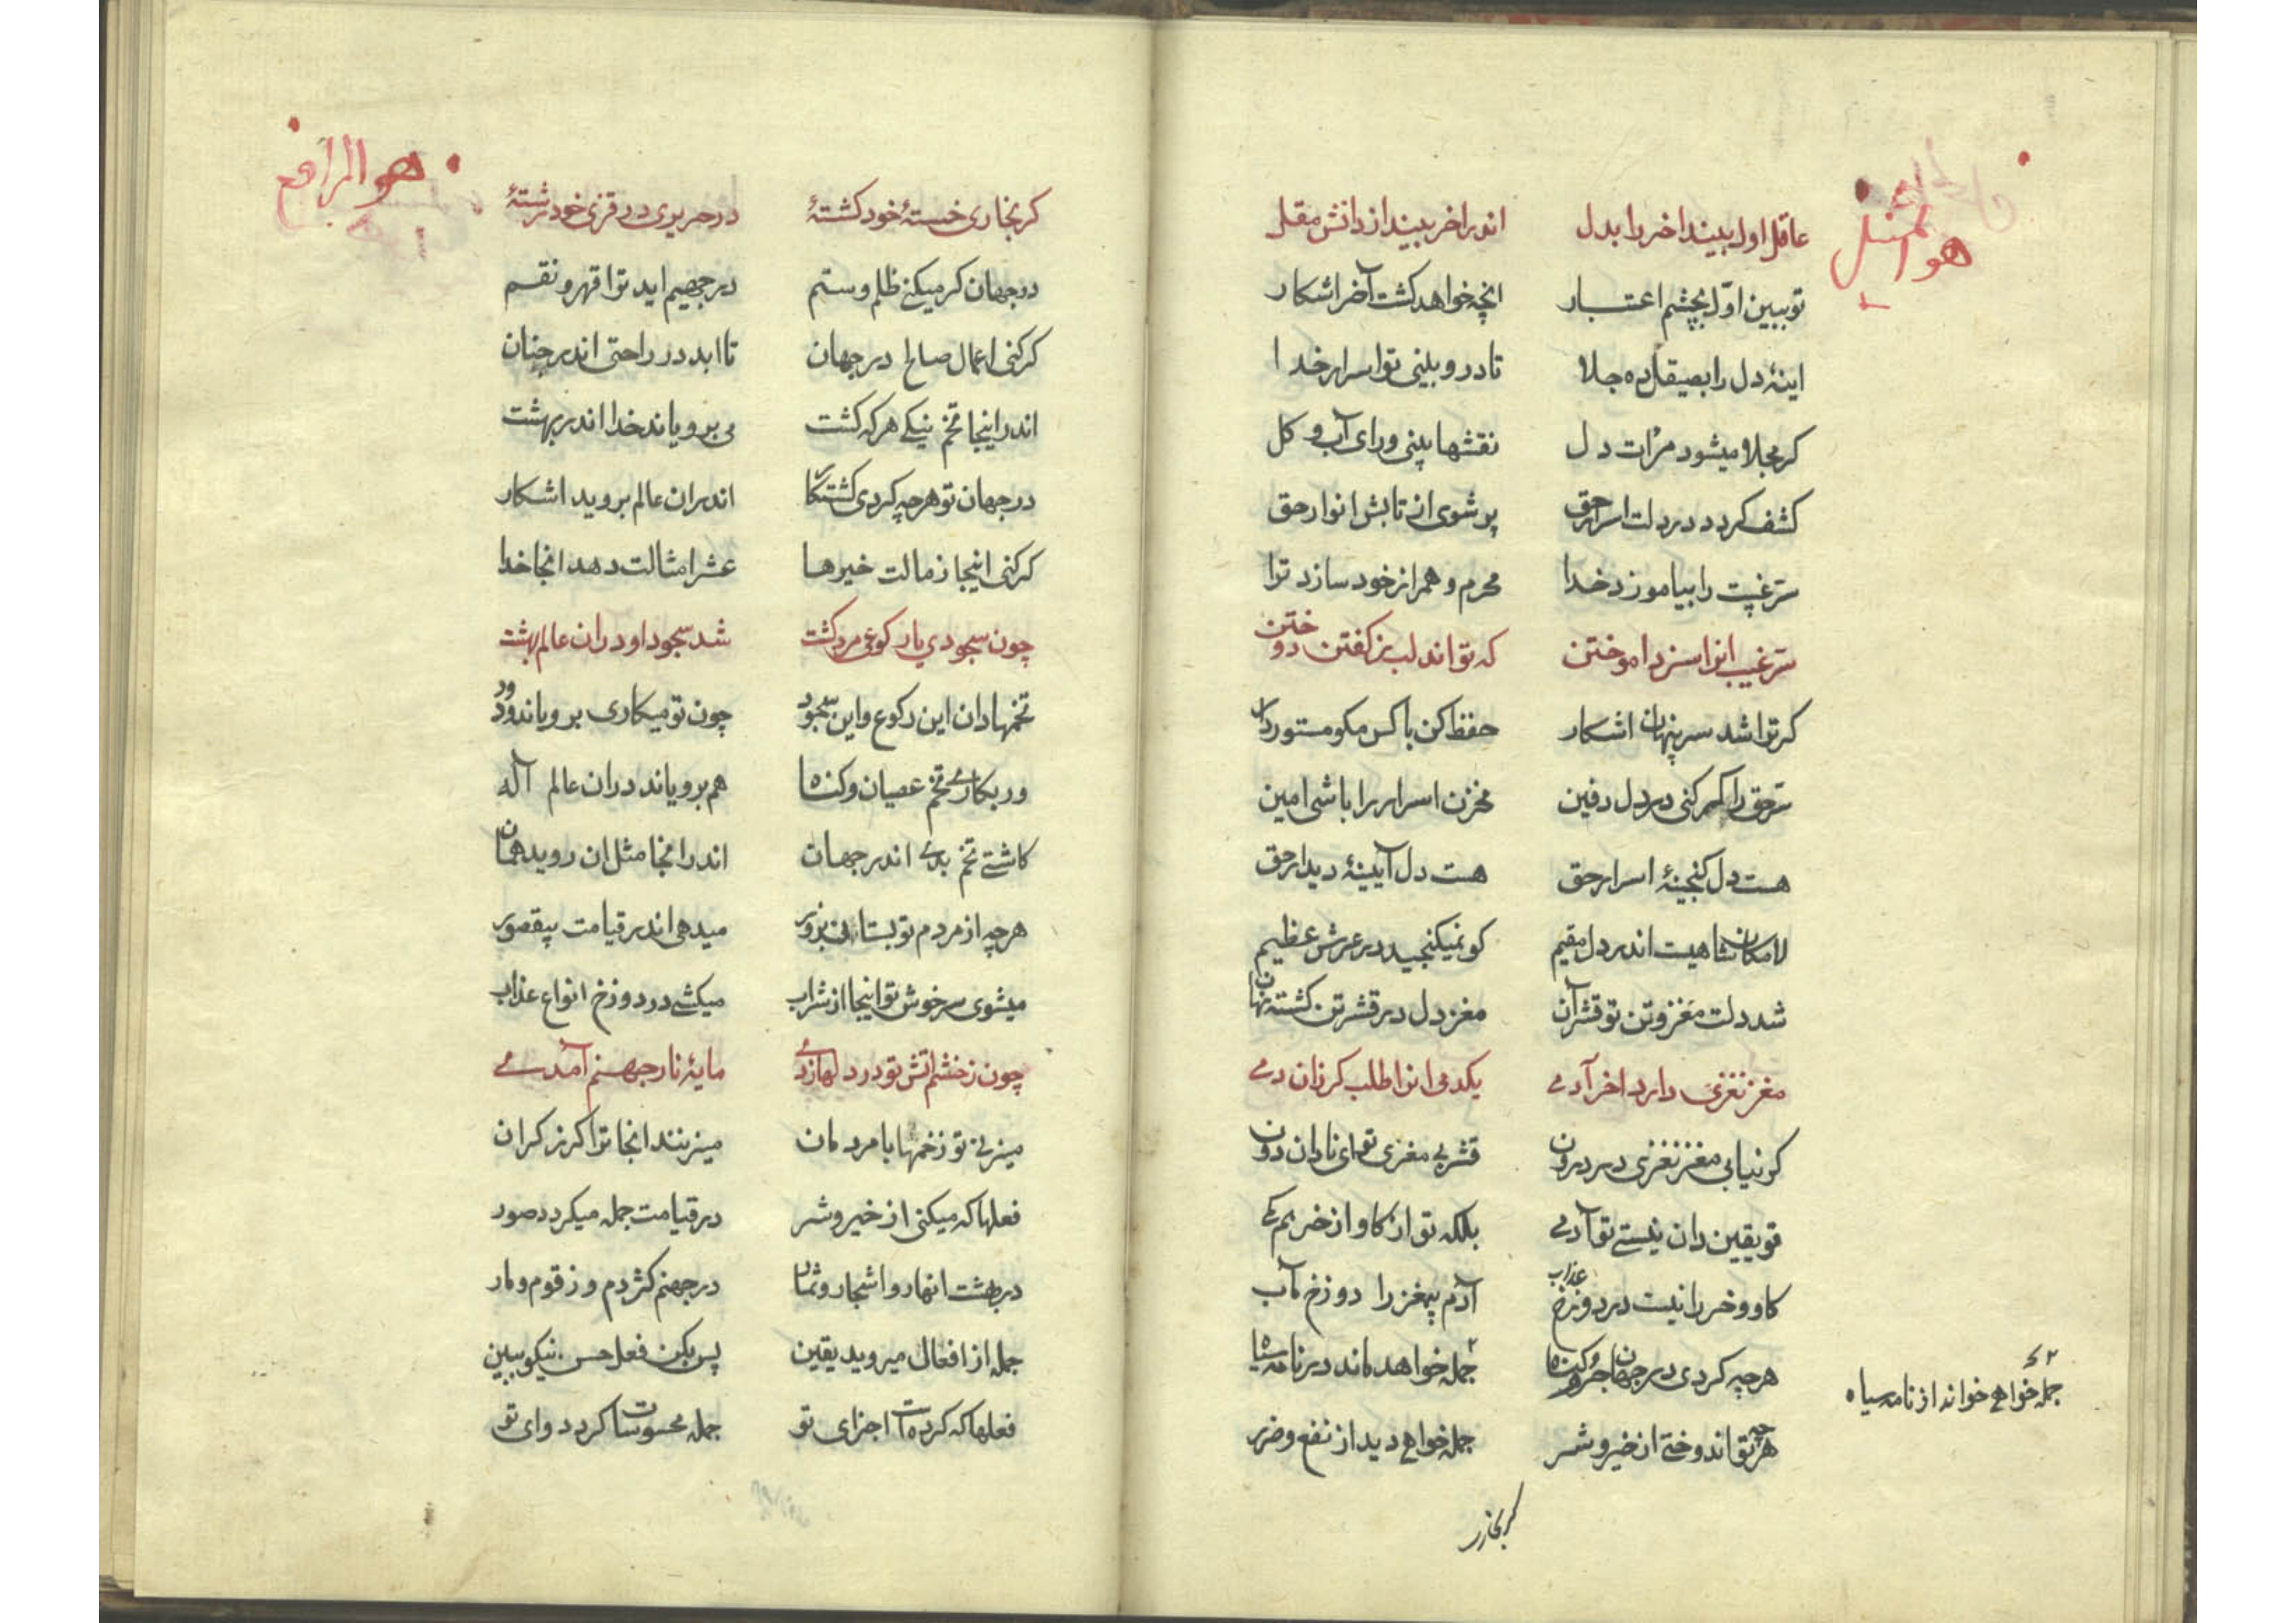 عاقل اول بیند اخر را بدل اندر اخر بیند از دانش مقل
تو ببین اوّل بچشم اعتبار انچه خواهد کشت آخر اشکار
اینهٔ دل را بصیقل ده جلا تا درو بینی تو اسرار خدا
کر مجلا میشود مرٔات دل نقشها بینی ورای آب و کل
کشف کردد در دلت اسرار حق پر شوی از تابش انوار حق
سرّ غیبت را بیاموزد خدا محرم و همراز خود سازد ترا
سرّ غیب انرا سزد اموختن که تواند لب ز کفتن دوختن
کر ترا شد سر پنهان اشکار حفظ کن با کس مکو مستور دار
سرّ حق را کر کنی در دل دفین مخزن اسرار را باشی امین
هست دل کنجینهٔ اسرار حق هست دل آیینهٔ دیدار حق
لامکان شاهیست اندر دل مقیم کو نمیکنجید در عرش عظیم
شد دلت مغز و تن تو قشر آن مغز دل در قشر تن کشته نهان
مغز نغزی دارد اخر آدمی یکدمی انرا طلب کر زان دمی
کو نیابی مغز نغزی در درون قشر بی مغزی تو ای نادان دون
تو یقین دان نیستی تو آدمی بلکه تو از کاو و از خر هم کمی
کاو و خر را نیست در دوزخ عذاب آدم بیمغز را دوزخ مآب
هرچه کردی در جهان اجر و کناه جمله خواهد ماند در نامه سیاه
جمله خواهی خواند از نامه سیاه
هر چه تو اندوختی از خیر و شر جمله خواهی دید از نفع و ضرر
کر بخار
هو الرافع
کر بخاری خستهٔ خود کشتهٔ در حریری در قزی خود رشتهٔ
در جهان کر میکنی ظلم و ستم در جحیم اید ترا قهر و نقم
کر کنی اعمال صالح در جهان تا ابد در راحتی اندر جنان
اندر اینجا تخم نیکی هر که کشت می برویاند خدا اندر بهشت
در جهان تو هرچه کردی کشتکار اندران عالم بروید اشکار
کر کنی اینجا ز مالت خیرها عشر امثالت دهد انجا خدا
چون سجودی یا رکوعی مرد کشت شد سجود او دران عالم بهشت
تخمها دان این رکوع و این سجود چون تو میکاری برویاند ودود
ور بکاری تخم عصیان و کناه هم برویاند دران عالم آله
کاشتی تخم بدی اندر جهان اندر انجا مثل ان روید همان
هرچه از مردم تو بستانی بزور میدهی اندر قیامت بیقصور
میشوی سرخوش تو اینجا از شراب میکشی در دوزخ انواع عذاب
چون ز خشم اتش تو در دلها زدی مایهٔ نار جهنم آمدی
میزنی تو زخمها با مردمان میزنند انجا ترا کرز کران
فعلها که میکنی از خیر و شر در قیامت جمله میکردد صور
در بهشت انهار و اشجار و ثمار در جهنم کژدم و زقوم و مار
جمله از افعال میروید یقین پس بکن فعل حسن نیکو ببین
فعلها که کرده است اجزای تو جمله محسوسات کردد وای تو